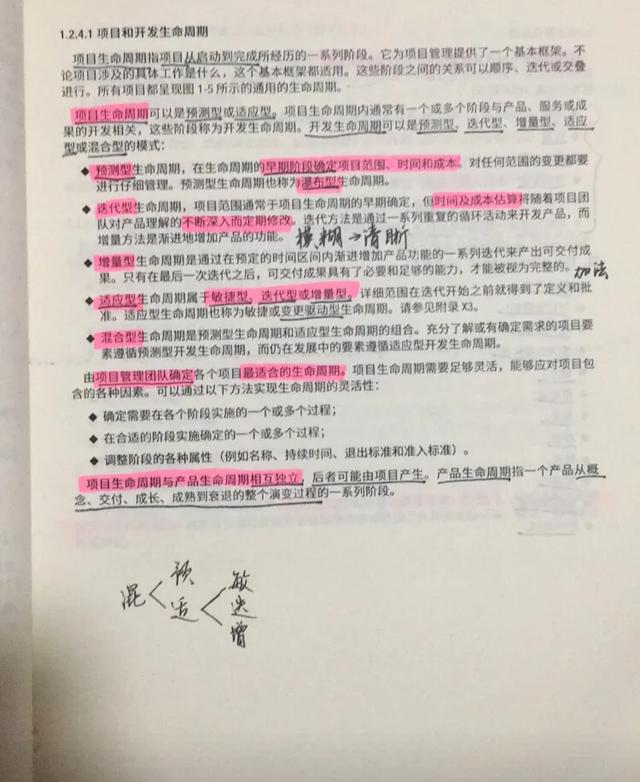 1.2.4.1 项目和开发生命周期
项目生命周期指项目从启动到完成所经历的一系列阶段。它为项目管理提供了一个基本框架。不
论项目涉及的具体工作是什么，这个基本框架都适用。这些阶段之间的关系可以顺序、迭代或交叠
进行。所有项目都呈现图 1-5 所示的通用的生命周期。
项目生命周期可以是预测型或适应型。项目生命周期内通常有一个或多个阶段与产品、服务或成
果的开发相关，这些阶段称为开发生命周期。开发生命周期可以是预测型、迭代型、增量型、适应
型或混合型的模式：
◆ 预测型生命周期，在生命周期的早期阶段确定项目范围、时间和成本。对任何范围的变更都要
进行仔细管理。预测型生命周期也称为瀑布型生命周期。
◆ 迭代型生命周期，项目范围通常于项目生命周期的早期确定，但时间及成本估算将随着项目团
队对产品理解的不断深入而定期修改。迭代方法是通过一系列重复的循环活动来开发产品，而
增量方法是渐进地增加产品的功能。 模糊→清晰
◆ 增量型生命周期是通过在预定的时间区间内渐进增加产品功能的一系列迭代来产出可交付成
果。只有在最后一次迭代之后，可交付成果具有了必要和足够的能力，才能被视为完整的。 加法
◆ 适应型生命周期属于敏捷型、迭代型或增量型。详细范围在迭代开始之前就得到了定义和批
准。适应型生命周期也称为敏捷或变更驱动型生命周期。请参见附录 X3。
◆ 混合型生命周期是预测型生命周期和适应型生命周期的组合。充分了解或有确定需求的项目要
素遵循预测型开发生命周期，而仍在发展中的要素遵循适应型开发生命周期。
由项目管理团队确定各个项目最适合的生命周期。项目生命周期需要足够灵活，能够应对项目包
含的各种因素。可以通过以下方法实现生命周期的灵活性：
◆ 确定需要在各个阶段实施的一个或多个过程；
◆ 在合适的阶段实施确定的一个或多个过程；
◆ 调整阶段的各种属性（例如名称、持续时间、退出标准和准入标准）。
项目生命周期与产品生命周期相互独立，后者可能由项目产生。产品生命周期指一个产品从概
念、交付、成长、成熟到衰退的整个演变过程的一系列阶段。
混
预
适
敏
迭
增